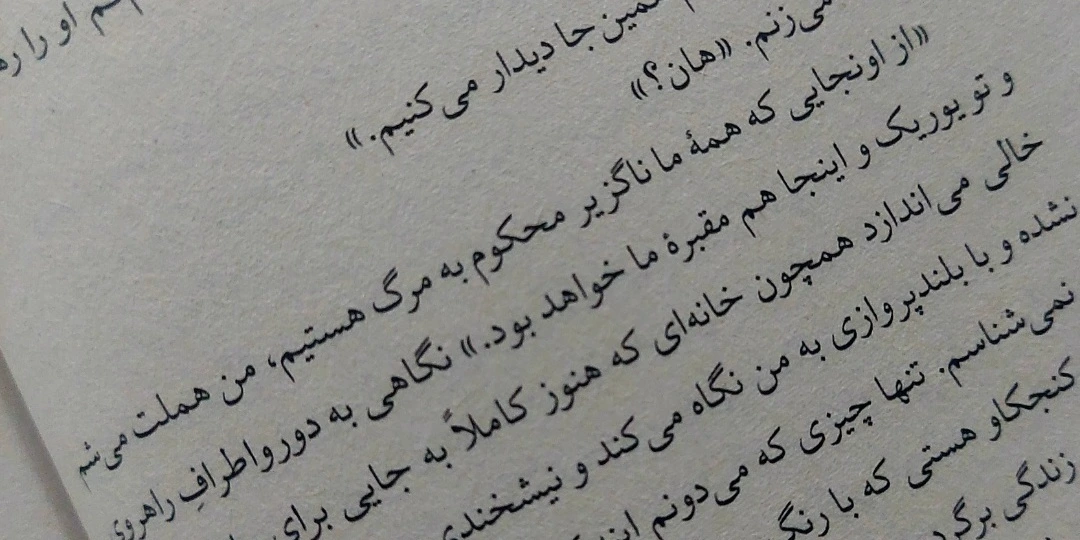 او را
همین جا دیدار می‌کنیم.»
می‌زنم. «هان؟»
«از اونجایی که همهٔ ما ناگزیر محکوم به مرگ هستیم، من هملت می‌شم
و تو یوریک و اینجا هم مقبرهٔ ما خواهد بود.» نگاهی به دورواطرافِ راهروی
خالی می‌اندازد همچون خانه‌ای که هنوز کاملاً به جایی برای
نشده و با بلندپروازی به من نگاه می‌کند و نیشخندی
نمی‌شناسم. تنها چیزی که می‌دونم
کنجکاو هستی که با رنگ
زندگی